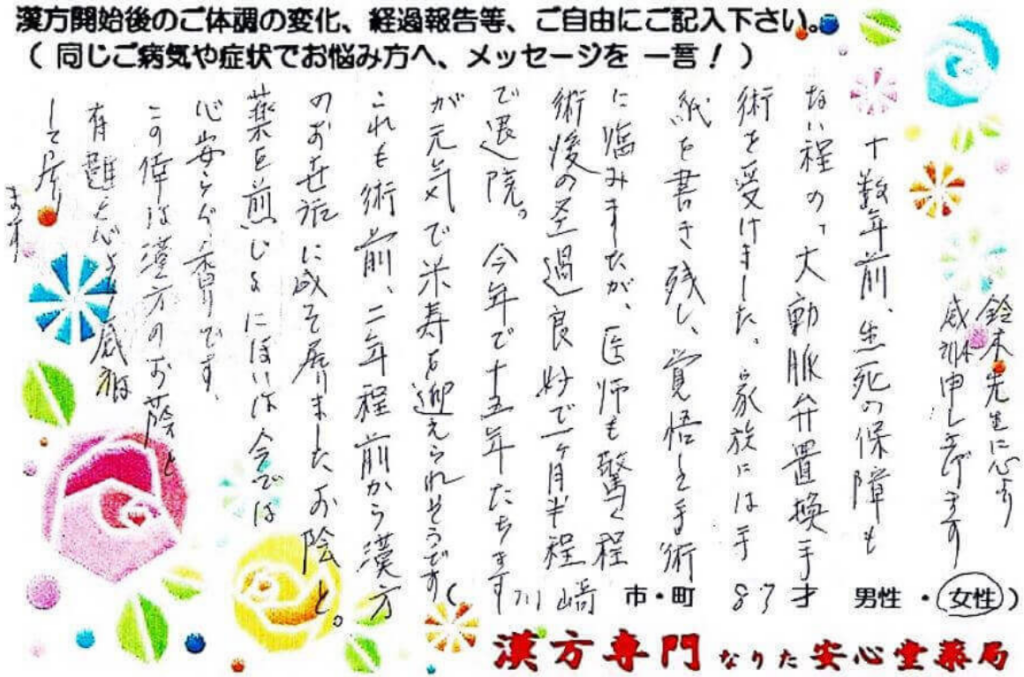 漢方開始後のご体調の変化、経過報告等、ご自由にご記入下さい。
（同じご病気や症状でお悩み方へ、メッセージを 一言！）
鈴木先生に心より
感謝申し上げます
十数年前、生死の保障も
ない程の、大動脈弁置換手
術を受けました。家族には手
紙を書き残し、覚悟して手術
に臨みましたが、医師も驚く程
術後の経過良好で一ヶ月半程
で退院。今年で十五年たちます
が元気で米寿を迎えられそうです
これも術前、二年程前から漢方
のお世話に成って居りましたお陰と。
薬を煎じるにほいは今では
心安らぐ香りです。
この倖は漢方のお蔭と
有難く心より感謝
して居り
ます
（川崎 市・町 87才 男性・女性）
漢方専門 なりた 安心堂薬局